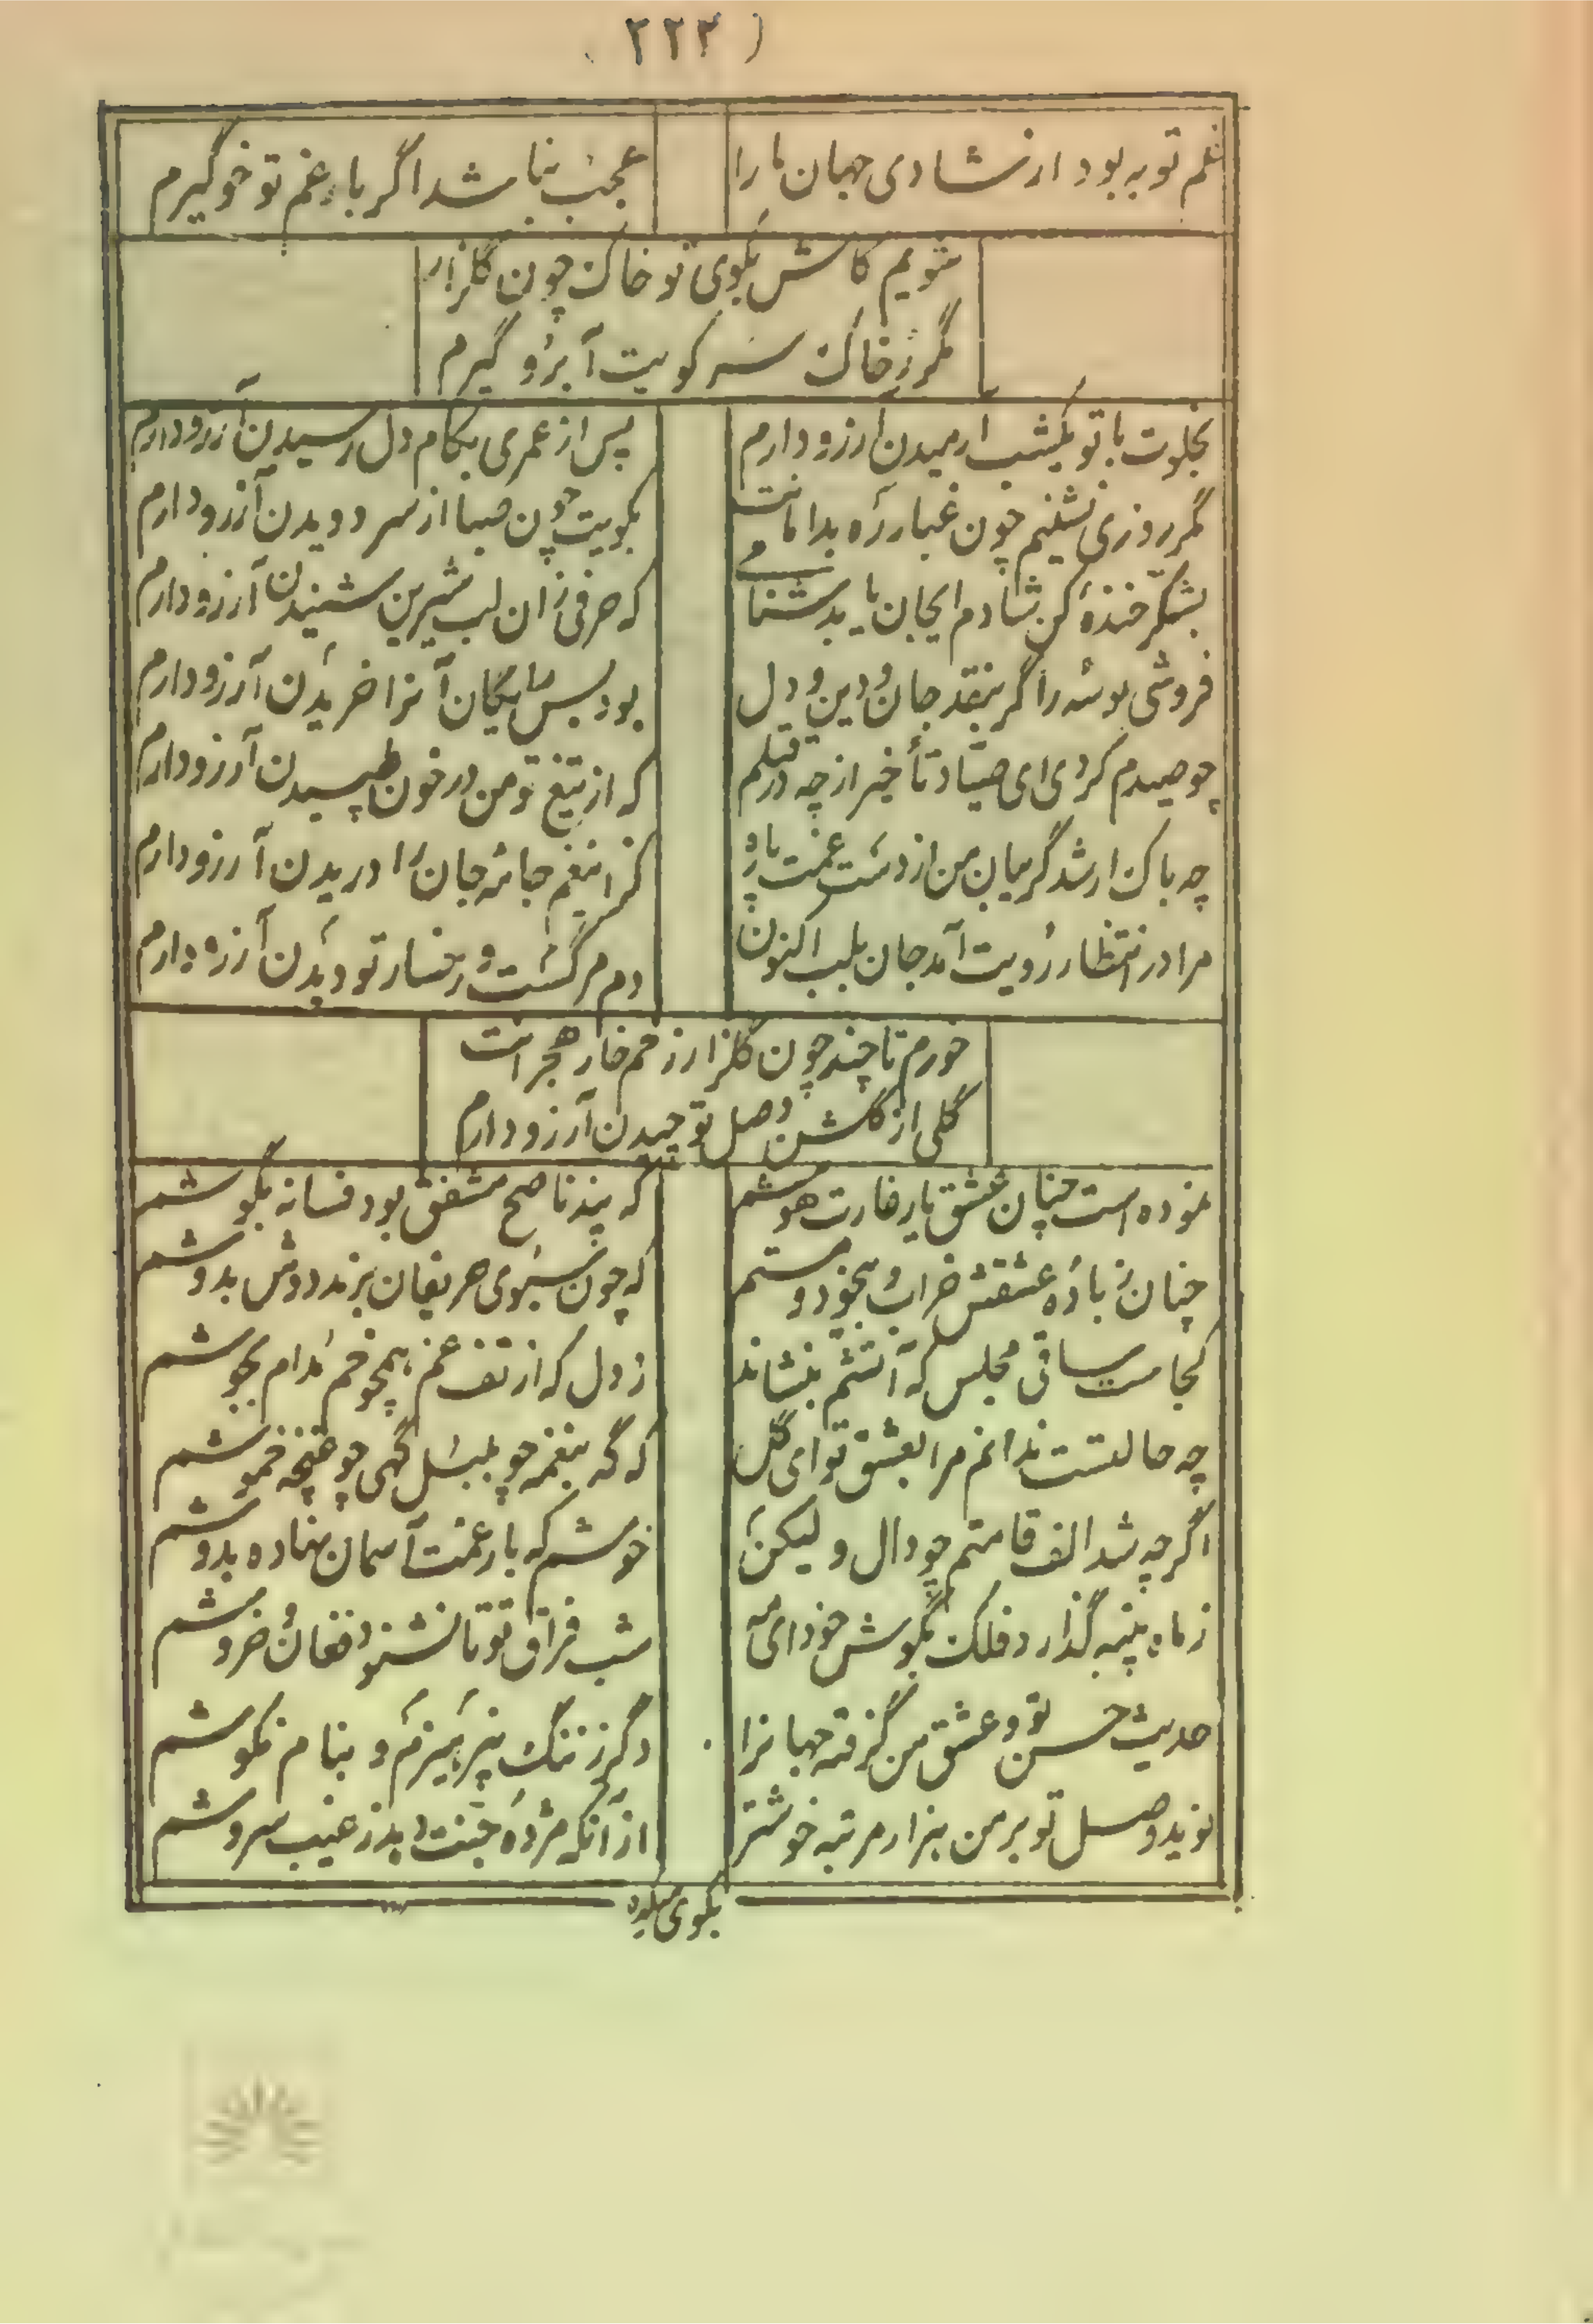 (۲۲۳
غم تو به بود از شادی جهان ما را
عجب نباشد اگر با غم تو خو گیرم
شویم کاش بکوی تو خاک چون گلزار
مگر ز خاک سر کویت آبرو گیرم
بخلوت با تو یکشب آرمیدن آرزو دارم
پس از عمری بکام دل رسیدن آرزو دارم
مگر روزی نشینم چون غبار ره بدامانت
بکویت چون صبا از سر دویدن آرزو دارم
بشکر خنده کن شادم ایجان یا بدشنامی
که حرفی زان لب شیرین شنیدن آرزو دارم
فروشی بوسه را گر بنقد جان و دین و دل
بود بس رایگان آنرا خریدن آرزو دارم
چو صیدم کردی ای صیاد تأخیر از چه در قتلم
که از تیغ تو من در خون طپیدن آرزو دارم
چه باک ار شد گریبان من از دست غمت پاره
کز اینغم جامه جان را دریدن آرزو دارم
مرا در انتظار رویت آمد جان بلب اکنون
دم مرگست و رخسار تو دیدن آرزو دارم
خورم تا چند چون گلزار زخم خار هجرانت
گلی از گلشن وصل تو چیدن آرزو دارم
نموده است چنان عشق یار غارت هوشم
که پند ناصح مشفق بود فسانه بگوشم
چنان ز باده عشقش خراب و بیخود و مستم
که چون سبوی حریفان برند دوش بدوشم
کجاست ساقی مجلس که آتشم بنشاند
ز دل که از تف غم همچو خم مدام بجوشم
چه حالتست ندانم مرا بعشق تو ای گل
که گه بنغمه چو بلبل گهی چو غنچه خموشم
اگر چه شد الف قامتم چو دال و لیکن
خوشم که بار غمت آسمان نهاده بدوشم
ز ماه پنبه گذارد فلک بگوش خود ای مه
شب فراق تو تا نشنود فغان و خروشم
حدیث حسن تو و عشق من گرفته جهانرا
دگر ز ننگ نپرهیزم و بنام نکوشم
نوید وصل تو بر من هزار مرتبه خوشتر
از آنکه مژده جنت دهد ز غیب سروشم
بکوی میکده